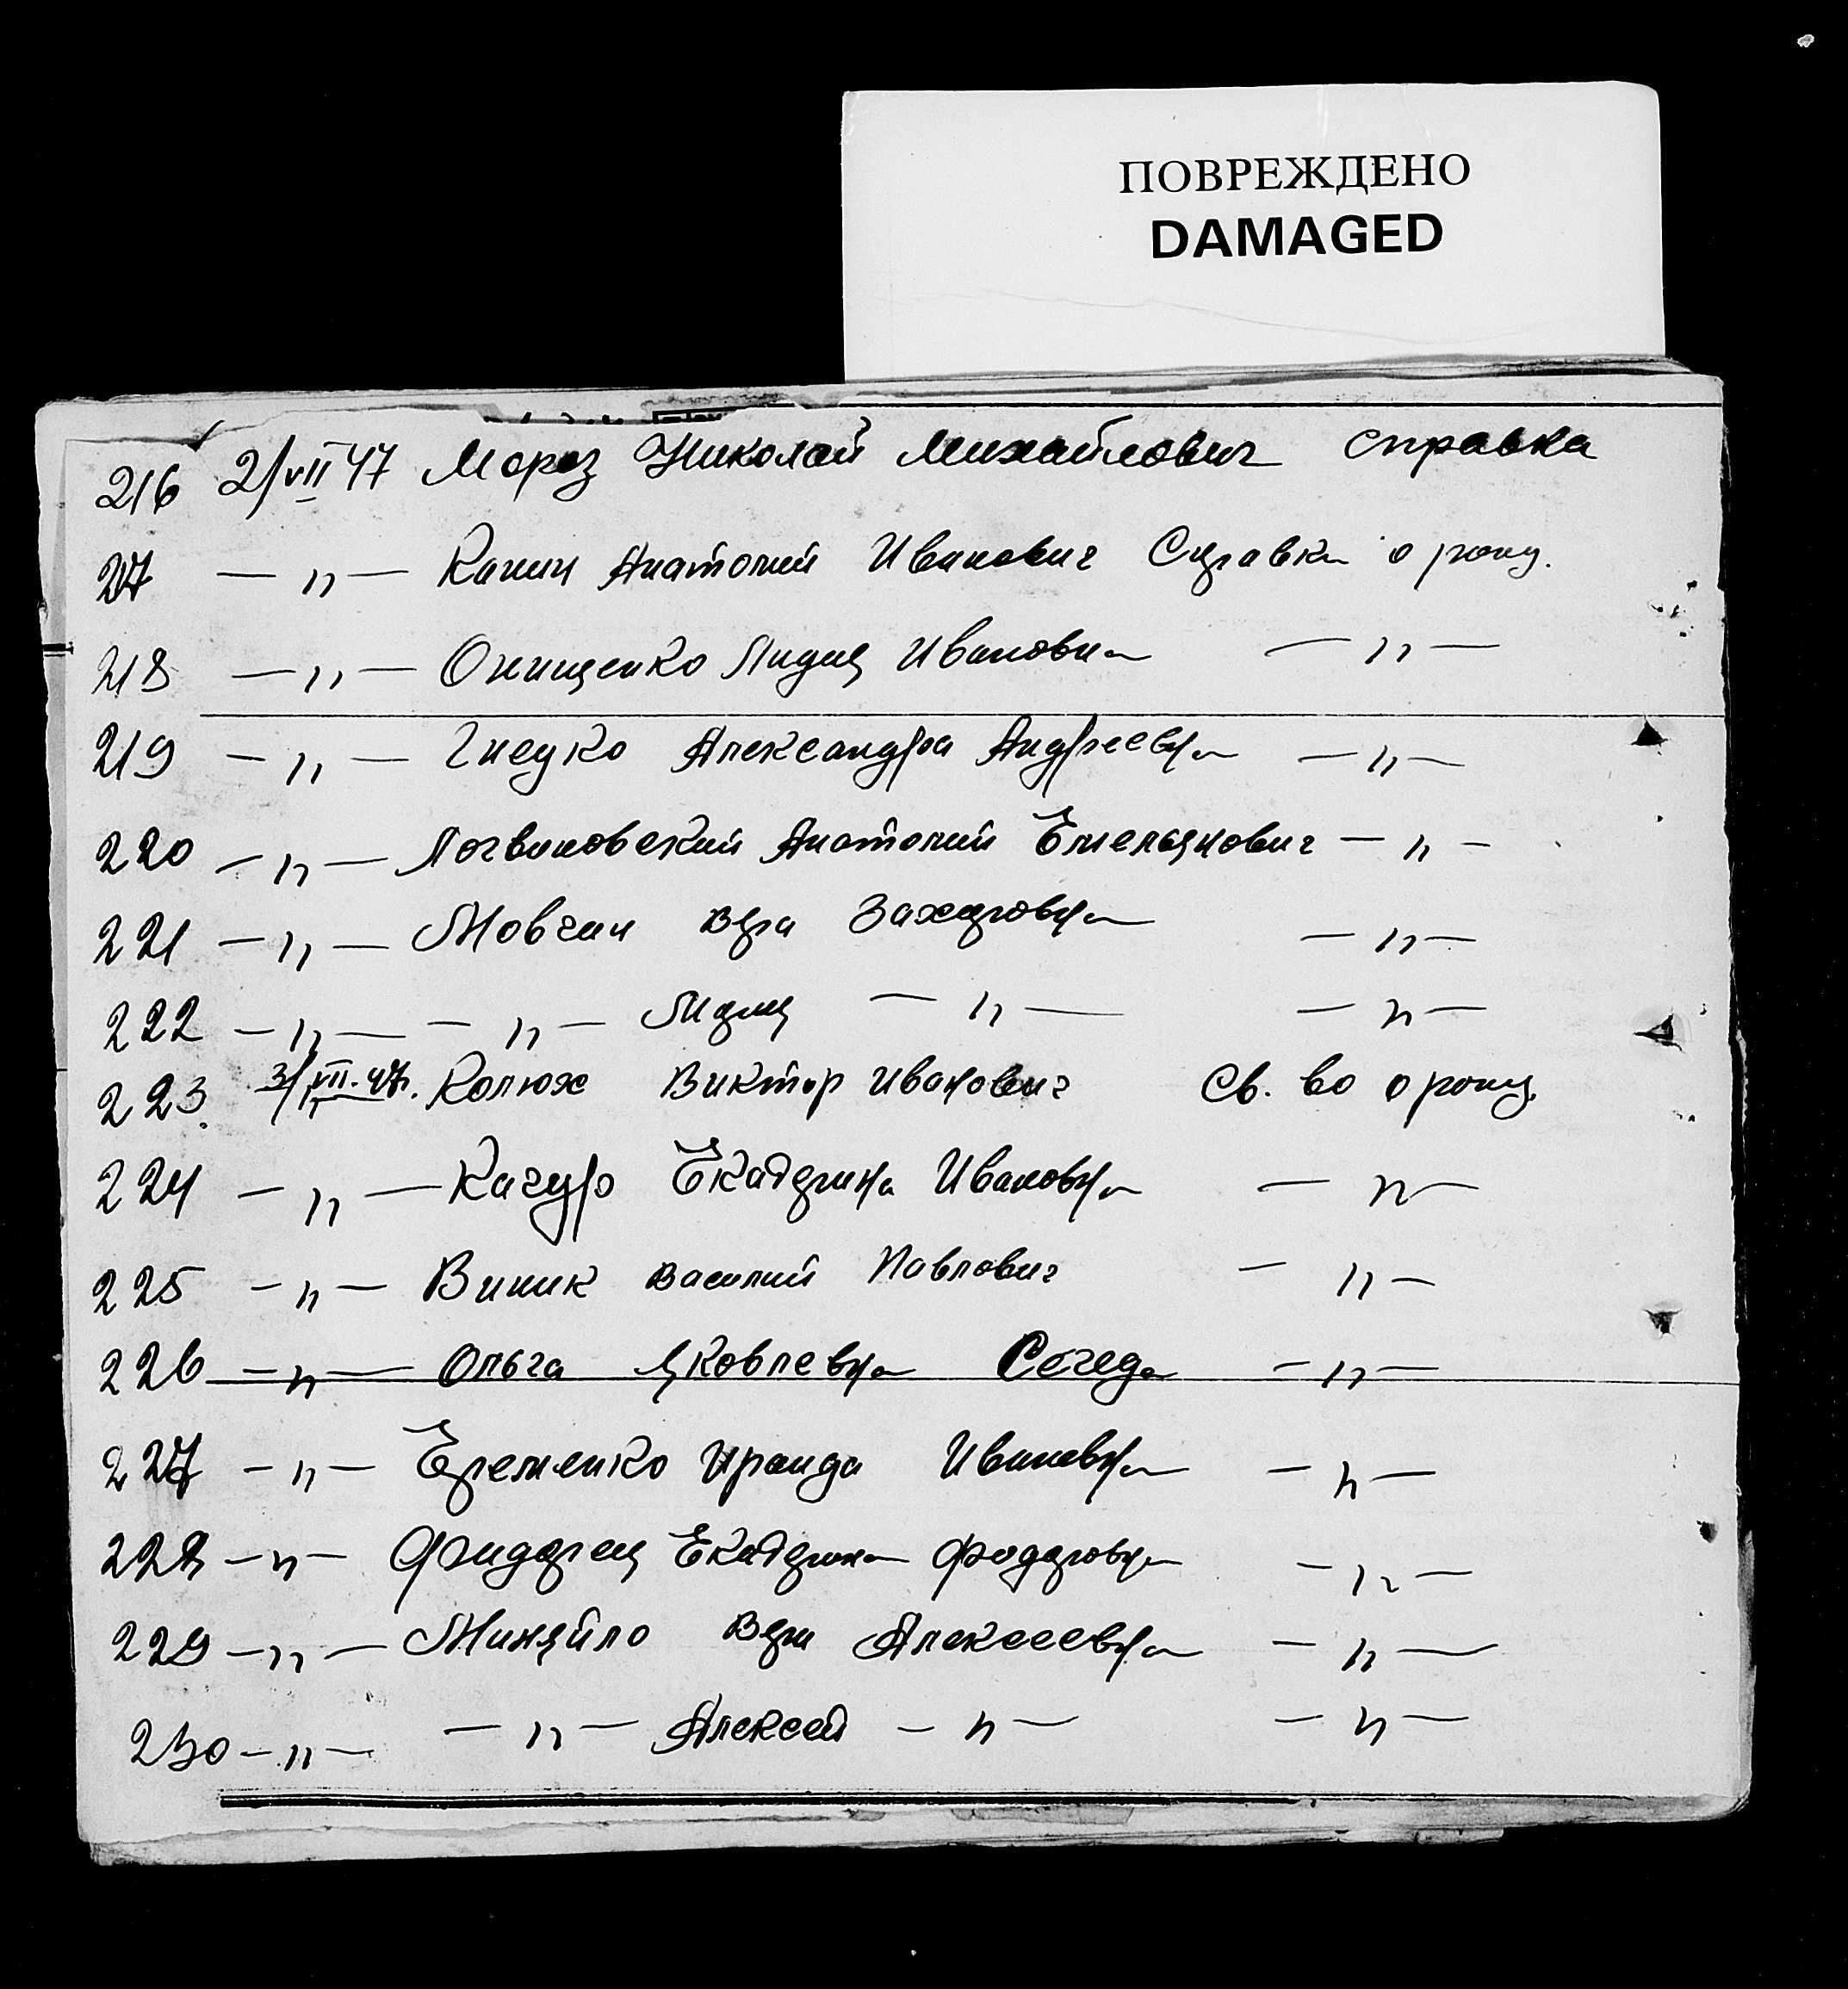 ПОВРЕЖДЕНО
DAMAGED
216 2/VII 47 Мороз Николай Михайлович справка
217 — " — Канин Анатолий Иванович Справка о рожд.
218 — " — Онищенко Лидия Ивановна — " —
219 — " — Гнедко Александра Андреевна — " —
220 — " — Логвиновский Анатолий Емельянович — " —
221 — " — Мовчан Вера Захаровна — " —
222 — " — — " — Лидия — " — — " —
223. 3/VII-47г. Колюх Виктор Иванович Св. во о рожд.
224 — " — Качур Екатерина Ивановна — " —
225 — " — Виник Василий Павлович — " —
226 — " — Ольга Яковлевна Сегеда — " —
227 — " — Еременко Ираида Ивановна — " —
228 — " — Екатерина Федоровна — " —
229 — " — Миняйло Вера Алексеевна — " —
230 — " — — " — Алексей — " — — " —